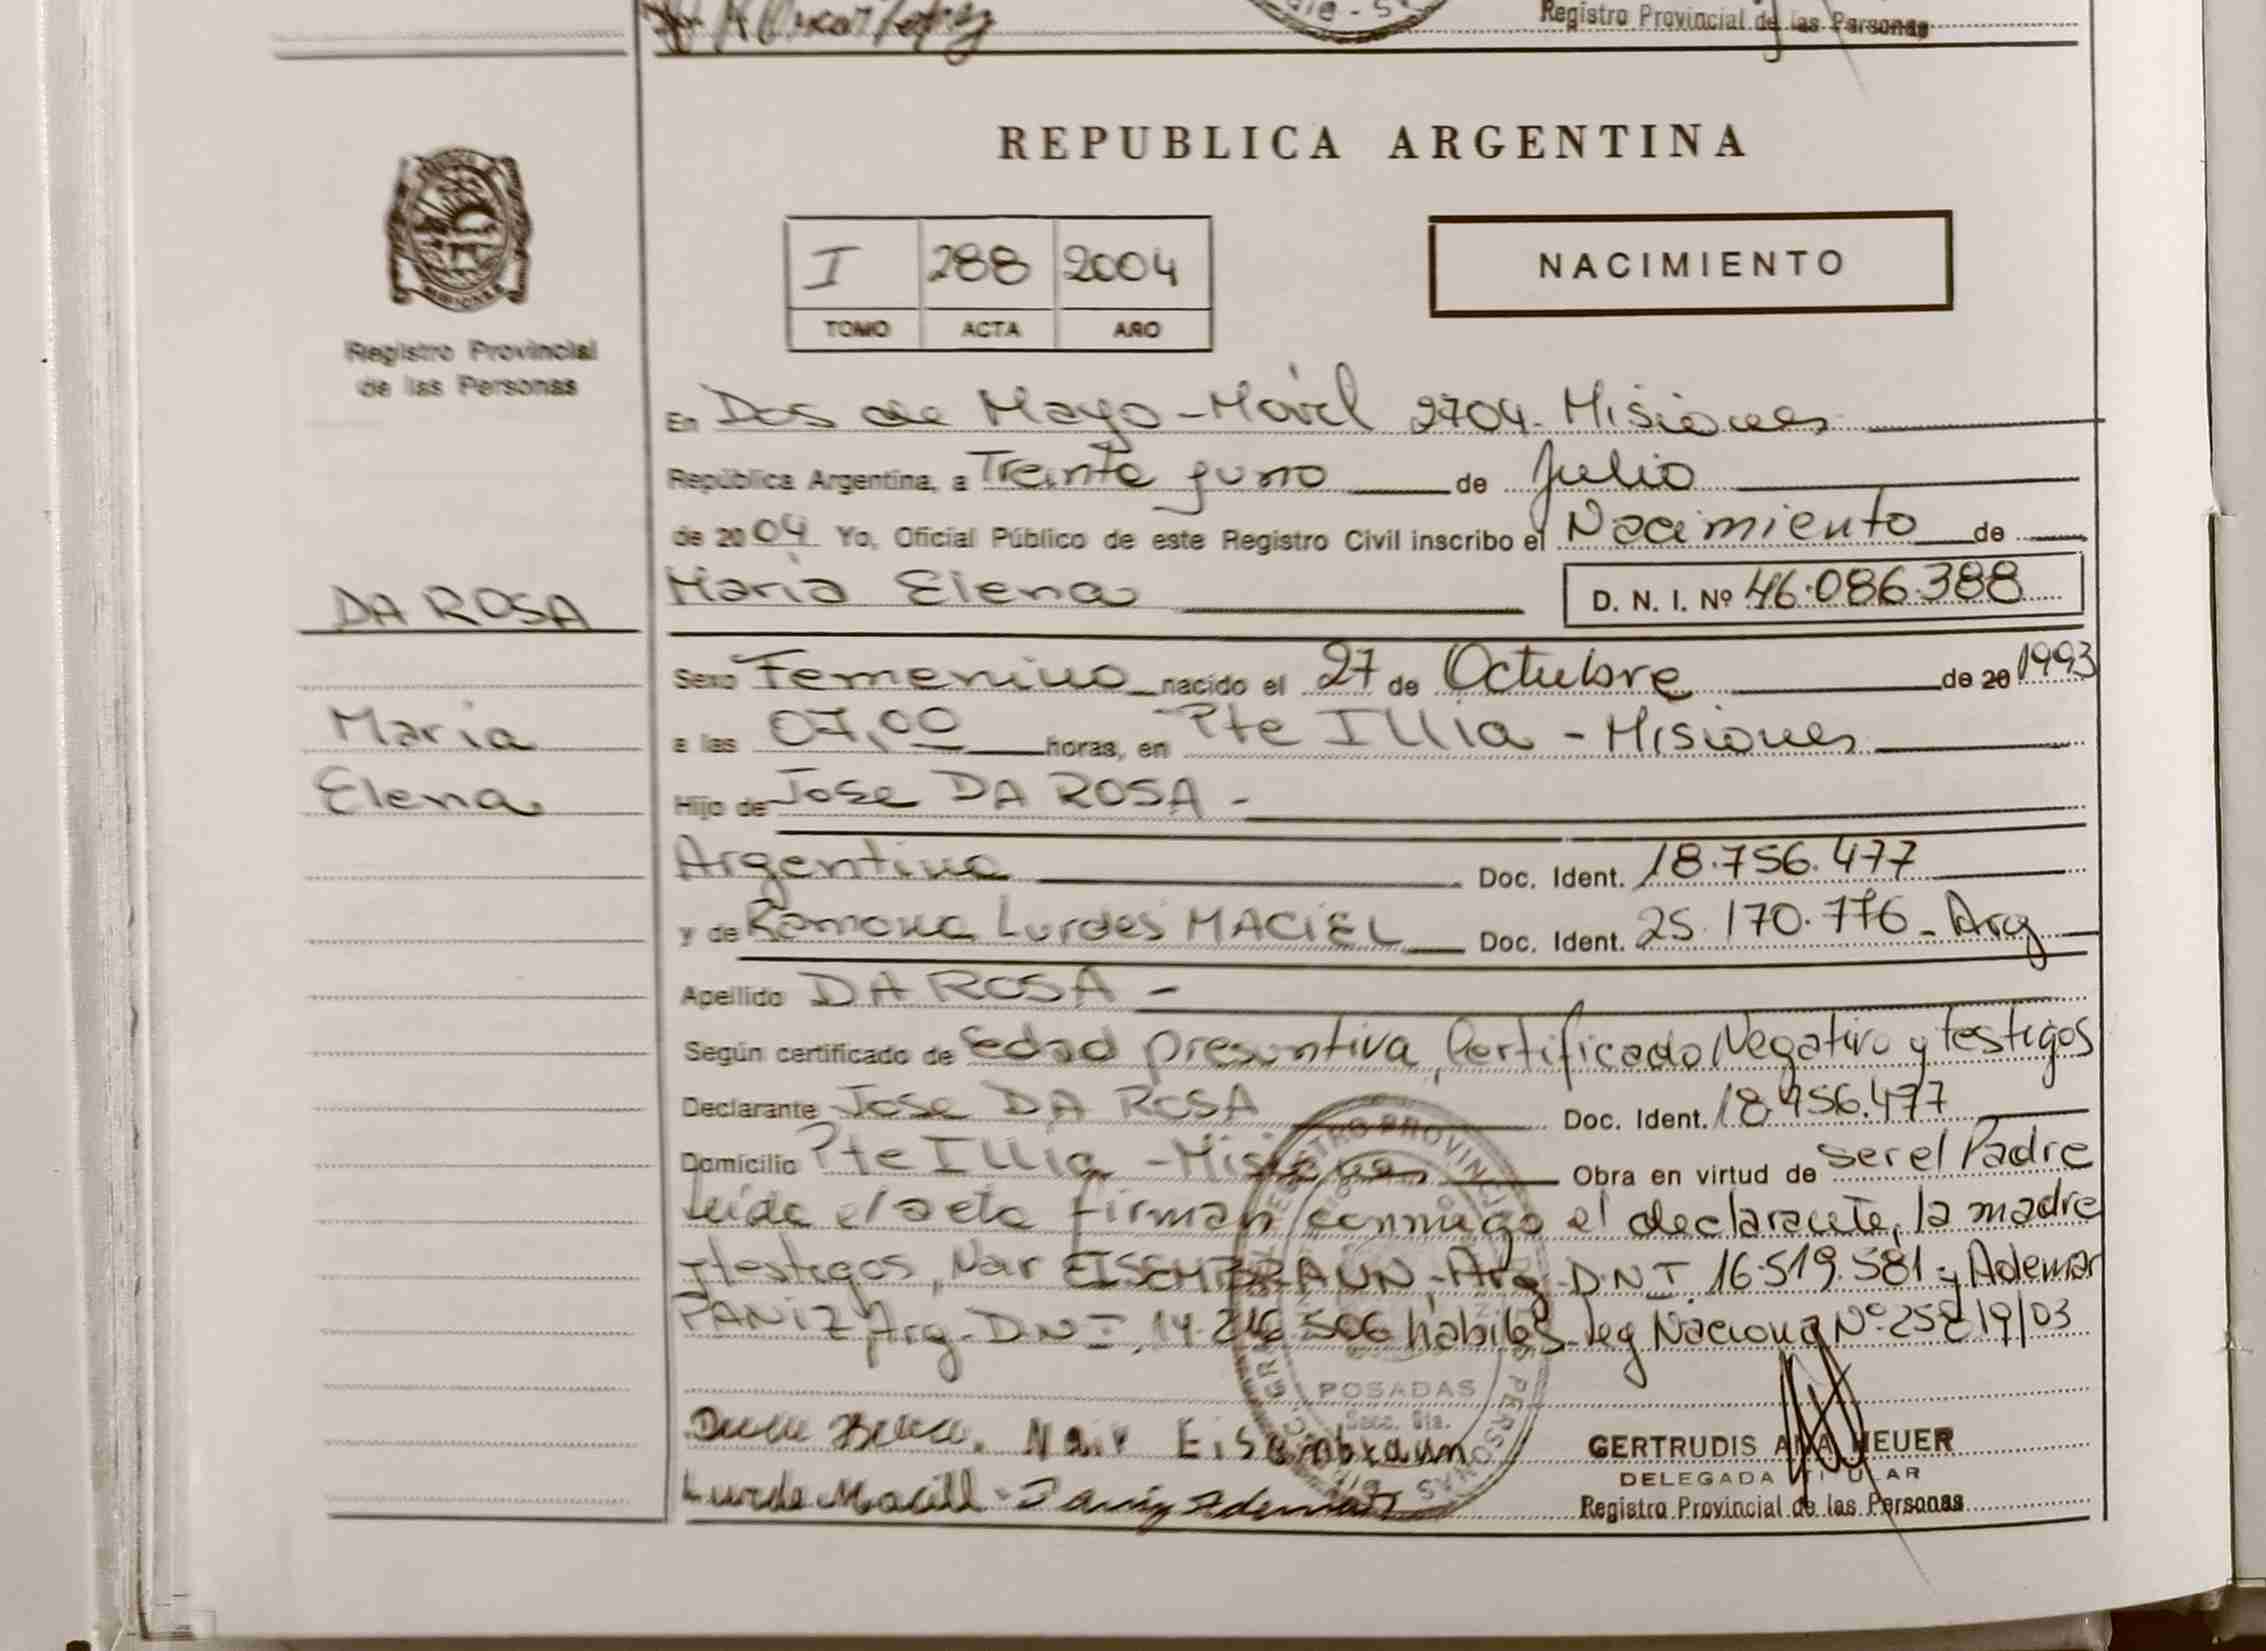 Registro Provincial de las Personas
REPUBLICA ARGENTINA
I 288 2004
TOMO ACTA AÑO
NACIMIENTO
Registro Provincial
de las Personas
En Dos de Mayo - Móvil 2704 - Misiones
República Argentina, a Treinta y uno de Julio
de 2004 Yo, Oficial Público de este Registro Civil inscribo el Nacimiento de
DA ROSA
Maria Elena D. N. I. Nº 46.086.388
Sexo Femenino nacido el 27 de Octubre de 20 1993
Maria
a las 07,00 horas, en Pte Illia - Misiones
Elena
Hijo de Jose DA ROSA -
Argentino Doc. Ident. 18.756.477
y de Ramona Lurdes MACIEL Doc. Ident. 25.170.776 - Arg
Apellido DA ROSA -
Según certificado de edad presuntiva, Certificado Negativo y testigos
Declarante Jose DA ROSA Doc. Ident. 18.756.477
Domicilio Pte Illia - Misiones Obra en virtud de ser el Padre
Leída el acta firman conmigo el declarante, la madre
y testigos, Nair EISEMBRAUN - Arg - D.N.I. 16.519.581 y Ademar
PANIZ Arg - D.N.I. 14.216.506 habiles - Ley Nacional Nº 25819/03
POSADAS
Nair Eisembraun
GERTRUDIS ANA HEUER
DELEGADA TITULAR
Paniz Ademar
Registro Provincial de las Personas